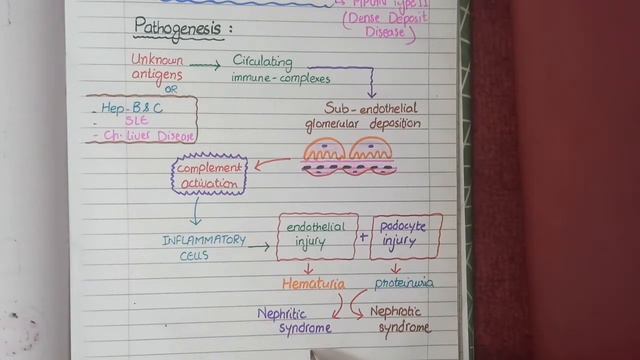 ↳ MPGN Type II
(Dense Deposit
Disease)
Pathogenesis :
Unknown antigens → Circulating immune-complexes
OR
- Hep-B & C
- SLE
- Ch. Liver Disease
Sub-endothelial
glomerular deposition
complement
activation
INFLAMMATORY
CELLS
→
endothelial
injury
+
podocyte
injury
Hematuria
proteinuria
Nephritic
syndrome
Nephrotic
syndrome